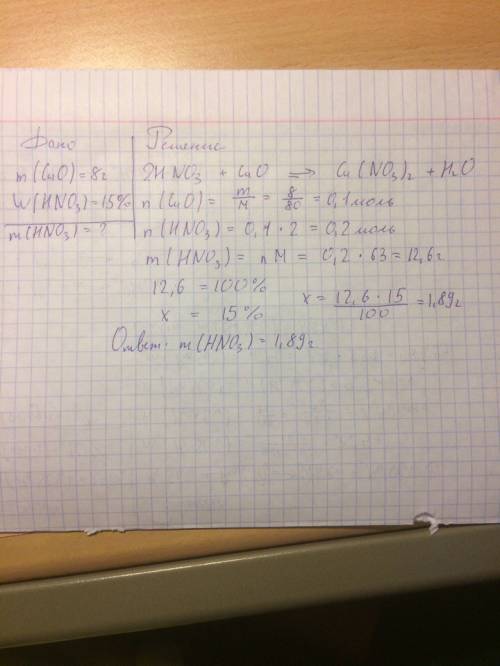 Дано
m(CuO)=8г
W(HNO₃)=15%
m(HNO₃)=?
Решение
2HNO₃ + CuO ⟹ Cu(NO₃)₂ + H₂O
n(CuO) = m/M = 8/80 = 0,1 моль
n(HNO₃) = 0,1 · 2 = 0,2 моль
m(HNO₃) = nM = 0,2 · 63 = 12,6г
12,6 = 100%
x = 15%
x = 12,6 · 15 / 100 = 1,89г
Ответ: m(HNO₃) = 1,89г